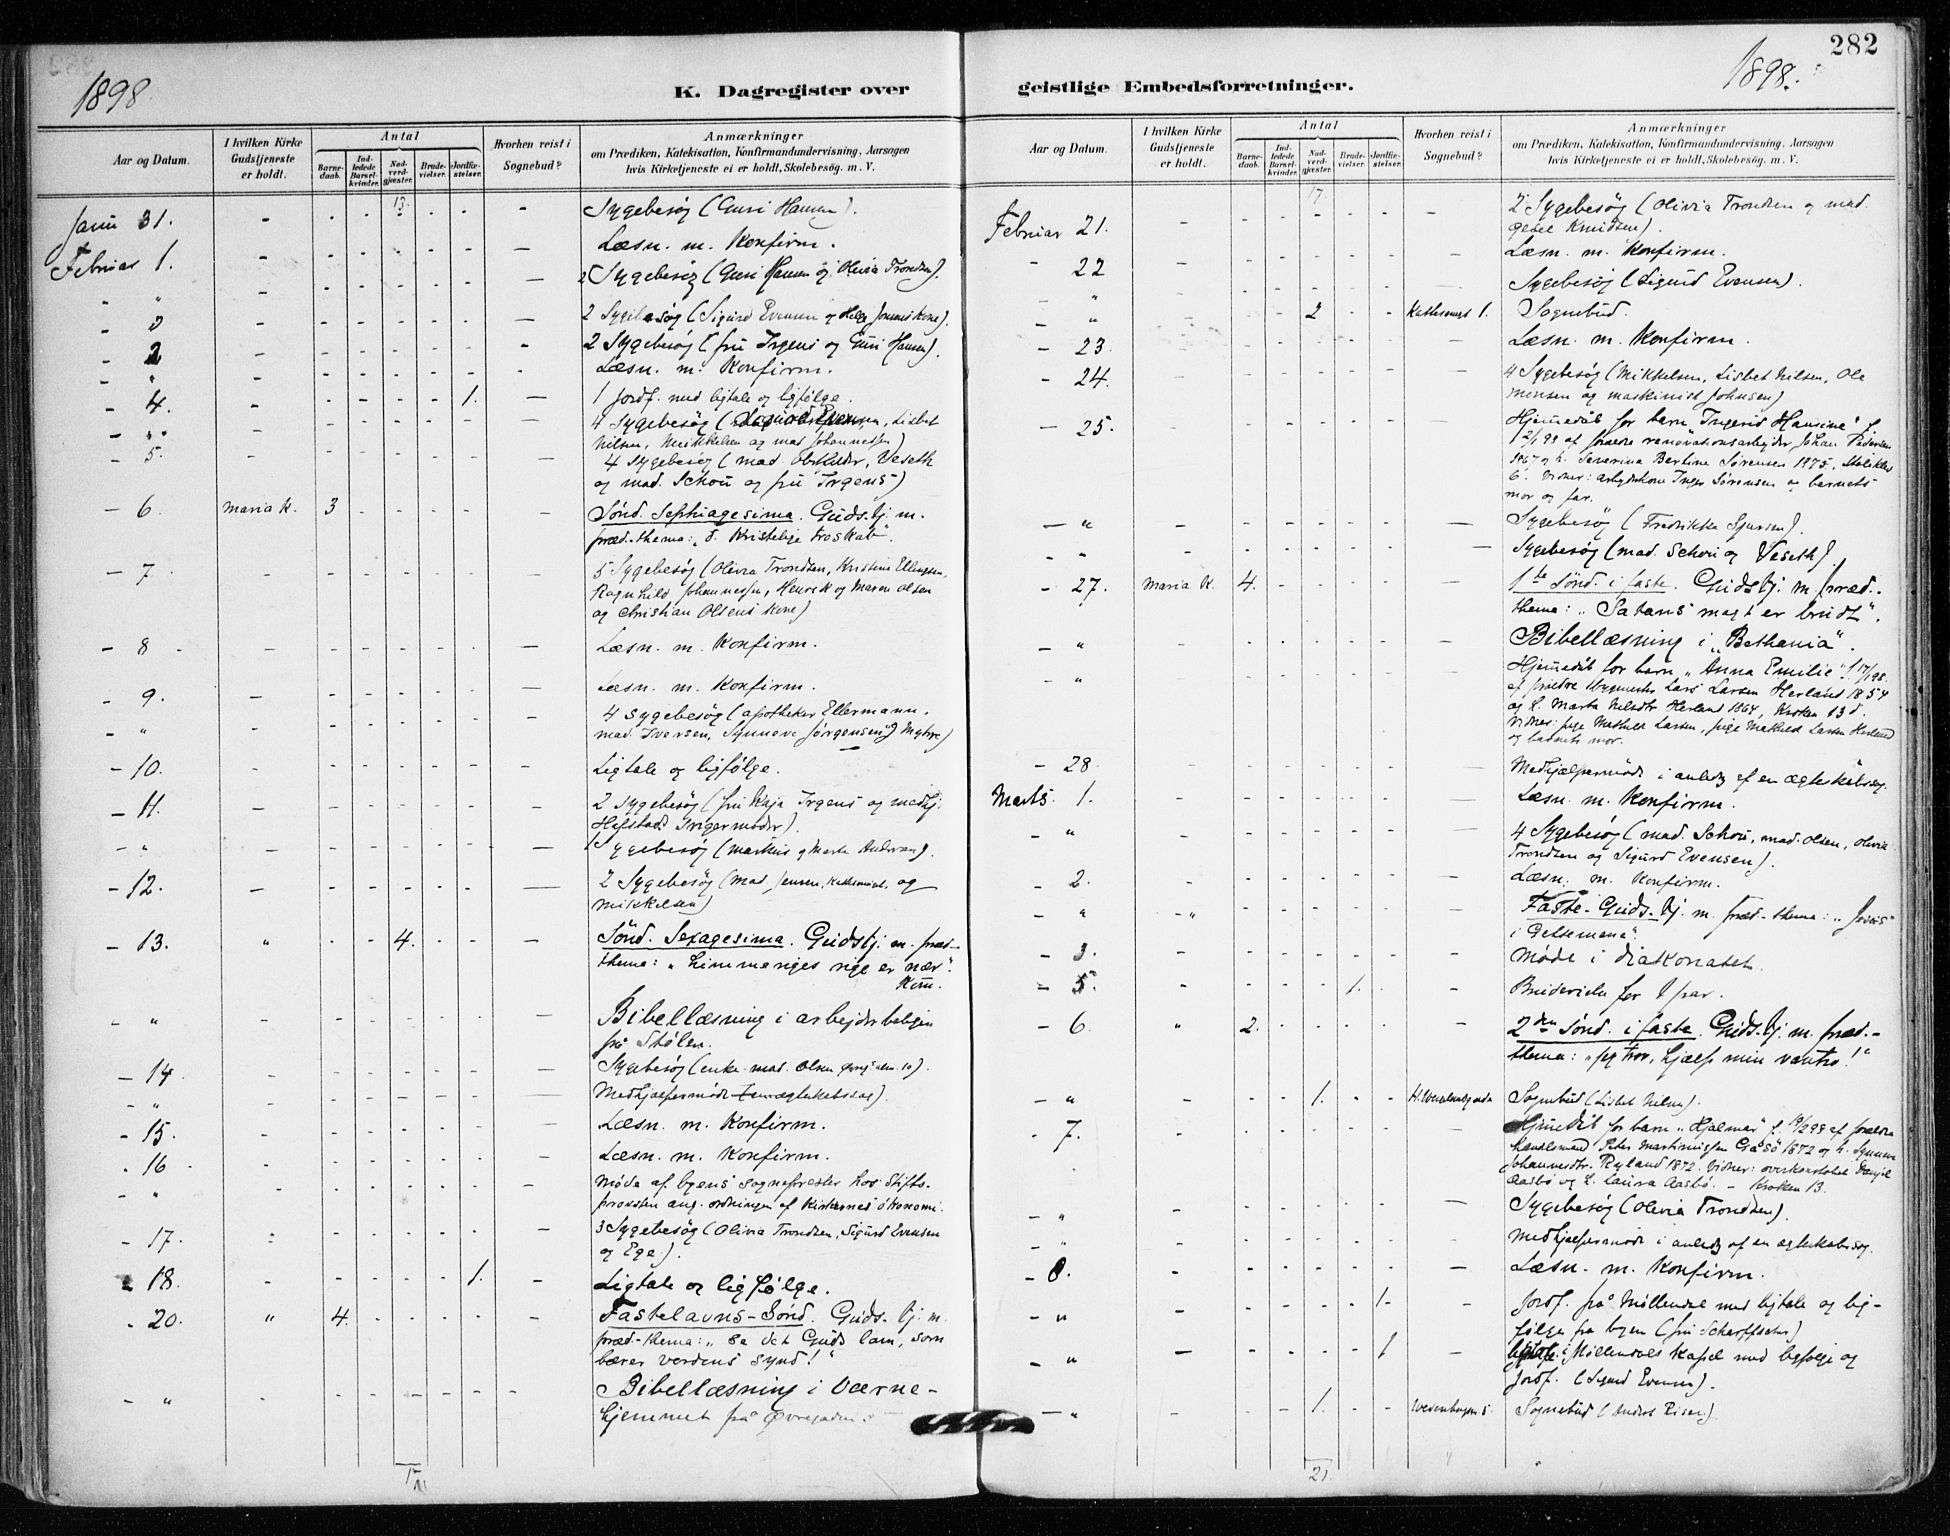 282
1898
1898.
K. Dagregister over
geistlige Embedsforretninger.
Aar og Datum.
I hvilken Kirke Gudstjeneste er holdt.
Antal
Barnedaab.
Indledede Barselkvinder.
Nadverdgjester.
Brudevielser.
Jordfæstelser.
Hvorhen reist i Sognebud?
Anmærkninger
om Prædiken, Katekisation, Konfirmandundervisning, Aarsagen
hvis Kirketjeneste ei er holdt, Skolebesøg. m. V.
Janu 31. Sygebesøg (Guri Hansen).
Februar 1. Læsn. m. Konfirm.
" 2 Sygebesøg (Guri Hansen og Olivia Trondsen).
2 Sygebesøg (Sigurd Evensen og Helge kone).
2 2 Sygebesøg (fru Irgens og Guri Hansen).
" Læsn. m. Konfirm.
4. 1. 1 Jordf. med ligtale og ligfølge.
" 4 Sygebesøg (Sigurd Evensen, Lisbet
Nilsen, Mikkelsen og mad. Johannessen)
5. 4 Sygebesøg (mad. Veseth
og mad. Schou og fru Irgens)
6. Maria K. 3 Sønd. Septuagesima. Guds.tj. m.
præd.-thema: "d. Kristelige troskab".
7. 5 Sygebesøg (Olivia Trondsen, Kristine Ellingsen,
Ragnhild Johannessen, Henrik og Maren Olsen
og Christian Olsens kone)
8 Læsn. m. Konfirm.
9. Læsn. m. Konfirm.
" 4 Sygebesøg (apotheker Ellermann,
mad. Iversen, Synneve Jørgensen, Myhre)
10. Ligtale og ligfølge.
11. 2 Sygebesøg (fru Kaja Irgens og medhj.
Hefstads svigermoder).
" Sygebesøg (Markus og Marta Andersen).
12. 2 Sygebesøg (mad. Jensen, Kattesmuet, og
Mikkelsen)
13. " 4. Sønd. Sexagesima. Gudstj. m. præd-
thema: "himmeriges rige er nær".
" Bibellæsning i arbejderboligen
på Stølen.
14 Sygebesøg (enke mad. Olsen 10).
" Medhjælpermøde ægteskabssag).
15. Læsn. m. Konfirm.
16 Læsn. m. Konfirm.
" Møde af byens sogneprester hos Stifts-
provsten ang. ordningen af kirkernes økonomi.
17. 3 Sygebesøg (Olivia Trondsen, Sigurd Evensen
og Ege).
18. 1. Ligtale og ligfølge.
20. " 4. Fastelavns-Sønd. Guds.tj. m.
præd-thema: "Se det Guds lam, som
bærer verdens synd!"
" Bibellæsning i Værne-
hjemmet på Øvregaden
Februar 21. 2 Sygebesøg (Olivia Trondsen og mad.
Knudsen).
22 Læsn. m. Konfirm.
Sygebesøg (Sigurd Evensen).
" 2 Kattesmuet 1. Sognebud.
23. Læsn. m. Konfirm.
24. 4 Sygebesøg (Mikkelsen, Lisbet Nilsen, Ole
Monsen og maskinist Johnsen)
25. Hjemmedåb for barn "Ingerid Hansine" f.
af forældre renovationsarbejder Johan Pedersen
1867 og h. Severina Bertine Sørensen 1875,
6. Vidner: arbejderkone Inger Sørensen og barnets
mor og far.
" Sygebesøg (Fredrikke).
" Sygebesøg (mad. Schou og Veseth).
27. Maria K. 4. 1te Sønd. i faste. Gudstj. m. præd.-
thema: "Satans magt er brudt".
" Bibellæsning i "Bethania".
" Hjemmedåb for barn "Anna Emilie" f.
af forældre Lars Larsen Herland 1854
og h. Marta Nilsdtr Herland 1864, Kroken 13d.
Vidner: pige Mathilde Larsen, pige Mathilde Larsen Herland
og barnets mor.
28 Medhjælpermøde i anledg af en ægteskabssag.
Marts 1. Læsn. m. Konfirm.
" 4 Sygebesøg (mad. Schou, mad. Olsen, Olivia
Trondsen og Sigurd Evensen).
2. Læsn. m. Konfirm.
" Faste-Guds.tj. m. præd-thema: "Jesus
i Getsemane".
3. Møde i diakonatet.
5. 1. Brudevielse for 1 par.
6. " 2. 2den Sønd. i faste. Guds.tj. m. præd.-
thema: "jeg tror, hjælp min vantro!"
" 1. Sognebud (Lisbet Nilsen).
7. Hjemmedåb for barn "Hjalmar" f. af forældre
Peter Martinussen Gåsø 1872 og h. Synneva
Johannesdtr. Ryland 1872. Vidner: overkonstabel Daniel
Aasbø og h. Laura Aasbø. - Kroken 13.
" Sygebesøg (Olivia Trondsen).
" Medhjælpermøde i anledg af en ægteskabssag.
8. Læsn. m. Konfirm.
" 1. Jordf. på Møllendal med ligtale og lig-
følge fra byen (fru)
" 1 i Møllendals kapel med ligfølge og
Jordf. (Sigurd Evensen).
" 1. Wesenbergs. Sognebud (Anders).
21.